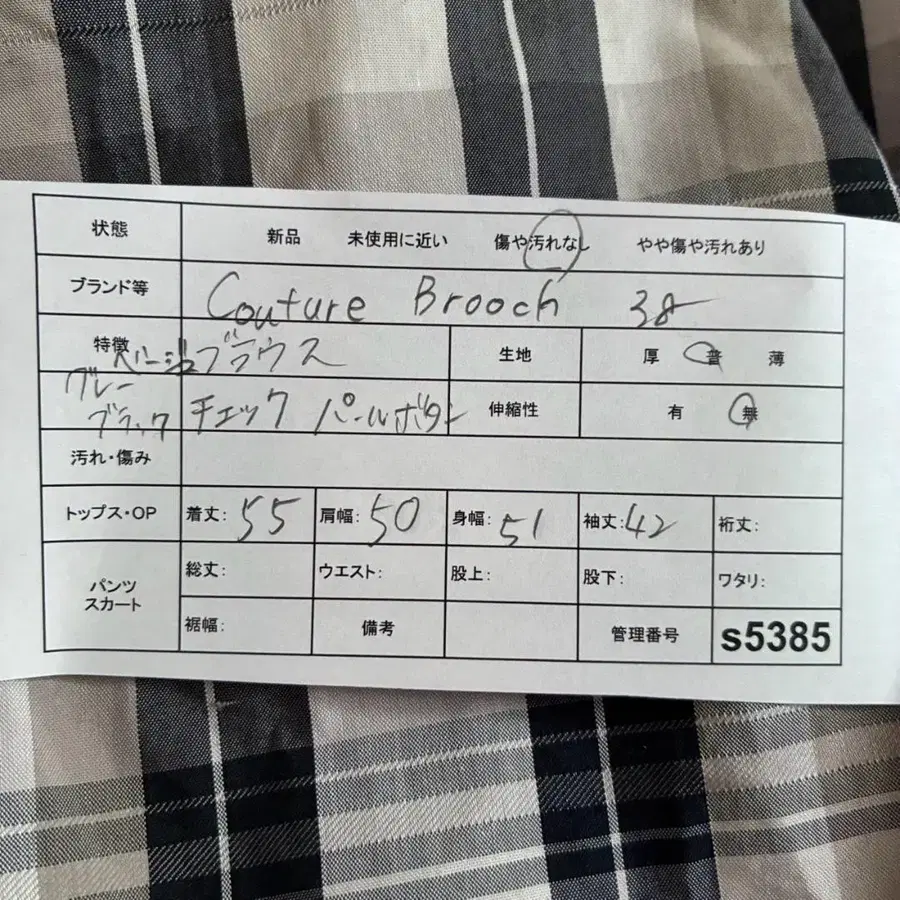 状態 新品 未使用に近い 傷や汚れなし やや傷や汚れあり
ブランド等 Couture Brooch 38
特徴 ベージュ ブラウス 生地 厚 普 薄
グレー
ブラック チェック パールボタン 伸縮性 有 無
汚れ・傷み
トップス・OP 着丈: 55 肩幅: 50 身幅: 51 袖丈: 42 裄丈:
パンツ スカート 総丈: ウエスト: 股上: 股下: ワタリ:
裾幅: 備考 管理番号 s5385